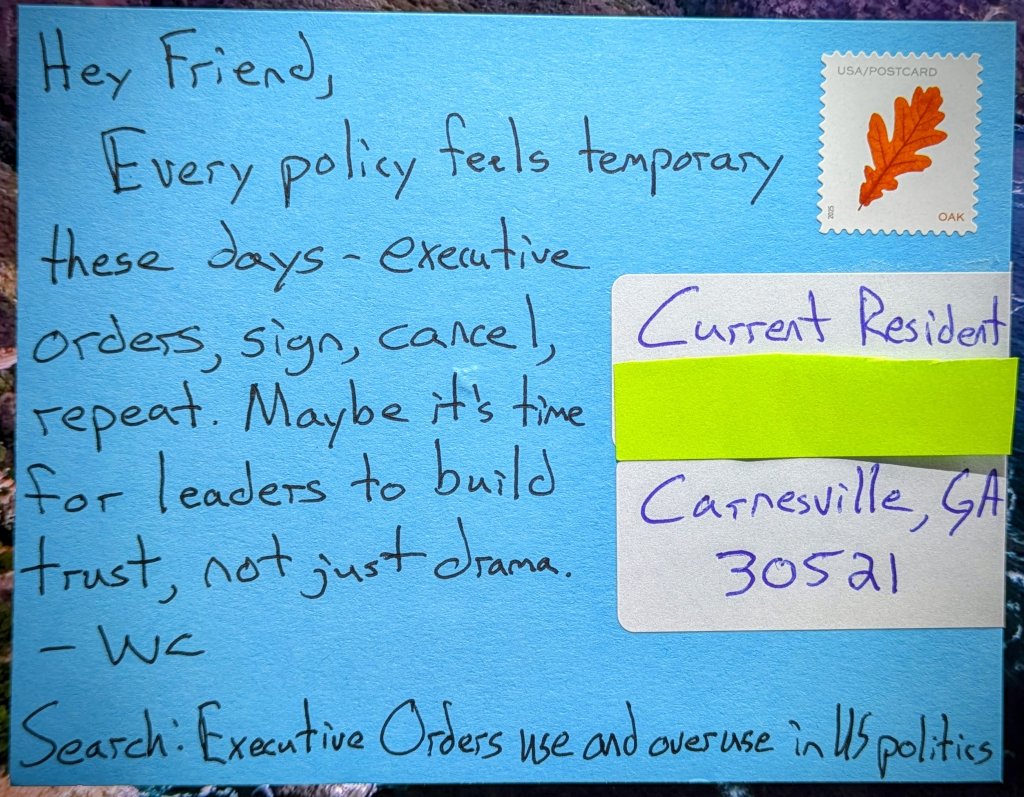 Hey Friend,
Every policy feels temporary
these days - executive
orders, sign, cancel,
repeat. Maybe it's time
for leaders to build
trust, not just drama.
- WC
Search: Executive Orders use and overuse in US politics
USA/POSTCARD
2025
OAK
Current Resident
Carnesville, GA
30521